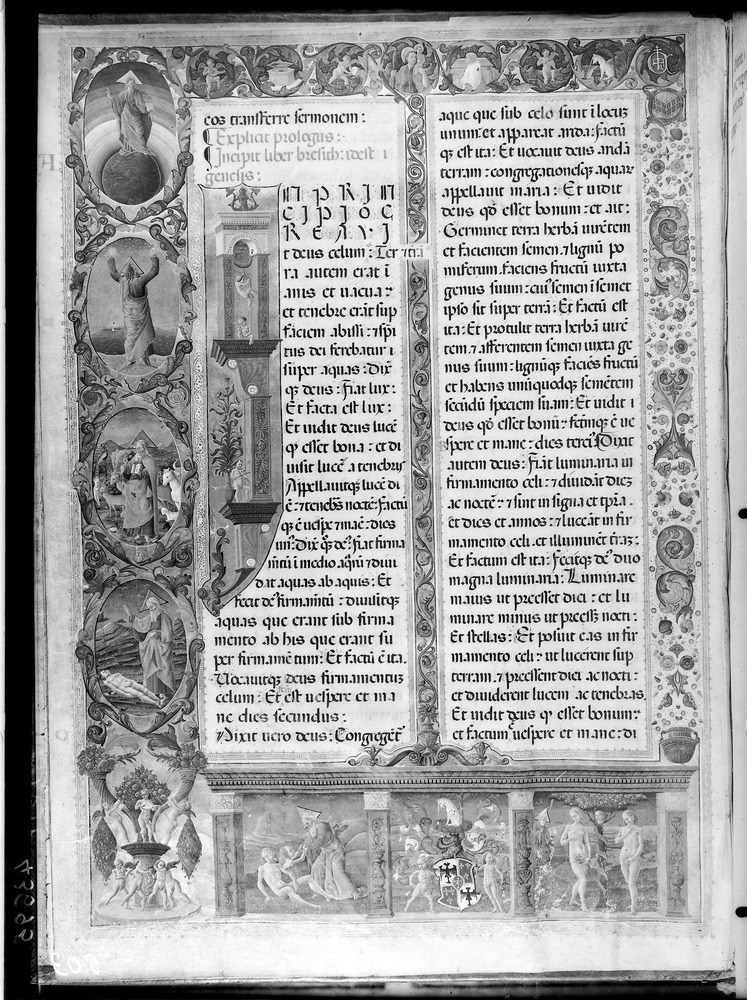 eos transferre sermonem:
Explicit prologus:
Incipit liber bresith: idest i
genesis:
IN PRIN
CIPIO C
REAVI
t deus celum: Ter
ra autem erat ī
anis et uacua:
et tenebre erāt sup
faciem abissi: ⁊ spi
tus dei ferebatur
super aquas: Dix
qȝ deus: Fiat lux:
Et facta est lux:
Et uidit deus lucē
qͥ esset bona: et di
uisit lucē a tenebris
Appellauitqȝ lucē di
ē: ⁊ tenebͣs noctē: factū
qȝ ē uespe ⁊ mane: dies
unꝰ: Dix qȝ deꝰ: fiat firma
mētū ī medio aqͣrū ⁊ diui
dat aquas ab aquis: Et
fecit deꝰ firmamētū: diuisitqȝ
aquas que erant sub firma
mento ab his que erant su
per firmamētum: Et factū ē ita.
Uocauitqȝ deus firmamentū
celum: Et est uespere et ma
ne dies secundus:
Dixit uero deus: Congregēt
aque que sub celo sunt ī locuȝ
unum: et appareat arida: factū
qȝ est ita: Et uocauit deus aridā
terram: congregationesqȝ aquaꝝ
appellauit maria: Et uidit
deus qd̄ esset bonum: et ait:
Germinet terra herbā uirētem
et facientem semen: ⁊ lignū po
miferum. faciens fructū iuxta
genus suum: cuiꝰ semen ī semet
ipso sit super terrā: Et factū est
ita: Et protulit terra herbā uirē
tem. ⁊ afferentem semen iuxta ge
nus suum: lignūqȝ faciēs fructū
et habens unūquodqȝ semētem
secūdū speciem suam: Et uidit
deus qd̄ esset bonū: factūqȝ ē ue
spere et mane: dies terciꝰ: Dixit
autem deus: Fiāt luminaria in
firmamento celi: ⁊ diuidāt dieȝ
ac noctē: ⁊ sint in signa et tpra.
et dies et annos: ⁊ luceāt in fir
mamento celi. et illuminēt terā:
Et factum est ita: Fecitqȝ deꝰ duo
magna luminaria: Luminare
maius ut preesset diei: et lu
minare minus ut preesset nocti:
Et stellas: Et posuit eas in fir
mamento celi: ut lucerent sup
terram. ⁊ preessent diei ac nocti:
et diuiderent lucem ac tenebras.
Et uidit deus qͥ esset bonum:
et factum uespere et mane: di
43695
503